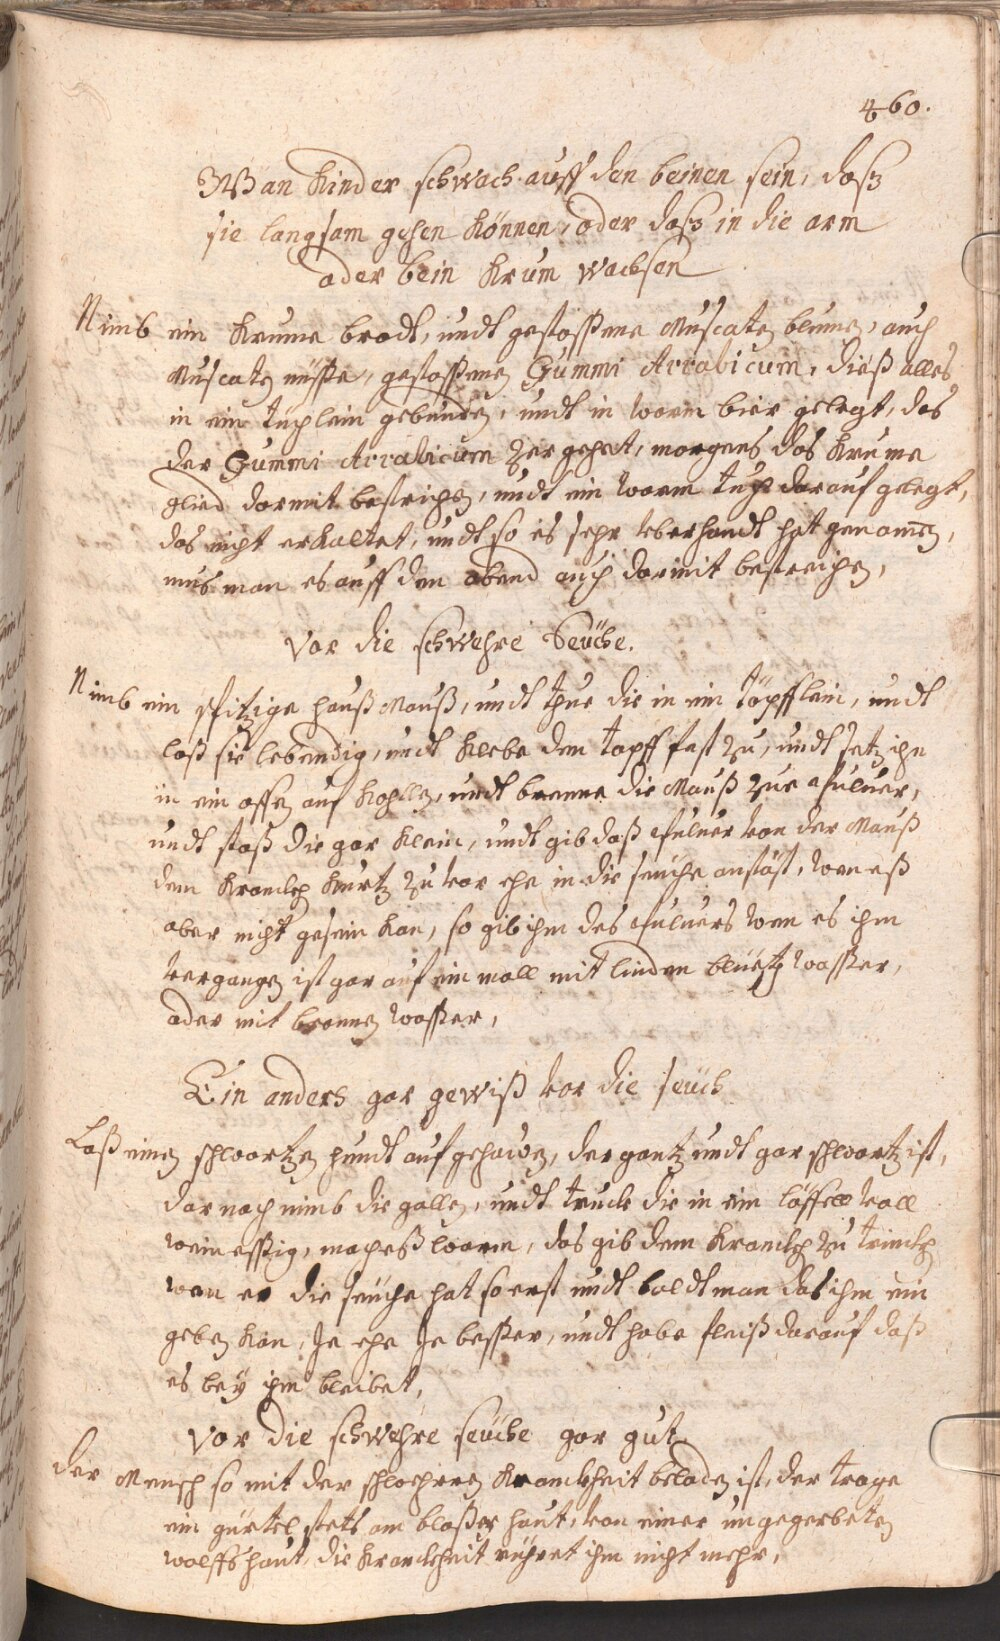 460.
Wan Kinder schwach auff den beinen sein, daß
sie langsam gehen können, oder daß in die arm
oder bein Krum wachsen
Nimb ein Krume brodt, undt gestossene Muscaten blumen, auch
Muscaten nüsse, gestossenen Gummi Arrabicum, dieß alles
in ein tüchlein gebunden, undt in warm bier gelegt, das
der Gummi Arrabicum zergehet, morgens das Krume
glied darmit bestrichen, undt ein warm tuch darauf gelegt,
das nicht erkaltet, undt so es sehr uberhandt hat genomen,
mus man es auff den abend auch darmit bestreichen,
Vor die schwehre Seüche.
Nimb ein spitzige hauß Mauß, undt thue die in ein töpfflein, undt
laß sie lebendig, undt Klebe den topff fast zu, undt setz ihn
in ein offen auf Kohllen, undt brenne die Mauß zue pulver,
undt stoß die gar Klein, undt gib daß pulver von der Mauß
dem Krancken kurtz zuvor ehe in die seuche anstöst, wen eß
aber nicht gesein kan, so gib ihm des pulvers wen es ihm
vergangen ist gar auf ein mall mit linden blüetz wasser,
oder mit bronnen wasser,
Ein anders gar gewiß vor die seüch
Laß einen schwartzen hundt aufhauwen, der gantz undt gar schwartz ist,
darnach nimb die gallen, undt truck die in ein löffell voll
weinessig, mach eß warm, das gib dem Krancken zu trincken
wan er die seuche hat so erst undt baldt man das ihm ein
geben kan, Je ehe Je besser, undt habe fleiß darauf daß
es bey ihm bleibet,
Vor die schwehre seüche gar gut
Der Mensch so mit der schwehren Kranckheit beladen ist, der trage
ein gürtel stets am bloßer haut, von einer ungegerbeten
wolffshaut, die Kranckheit rühret ihm nicht mehr,